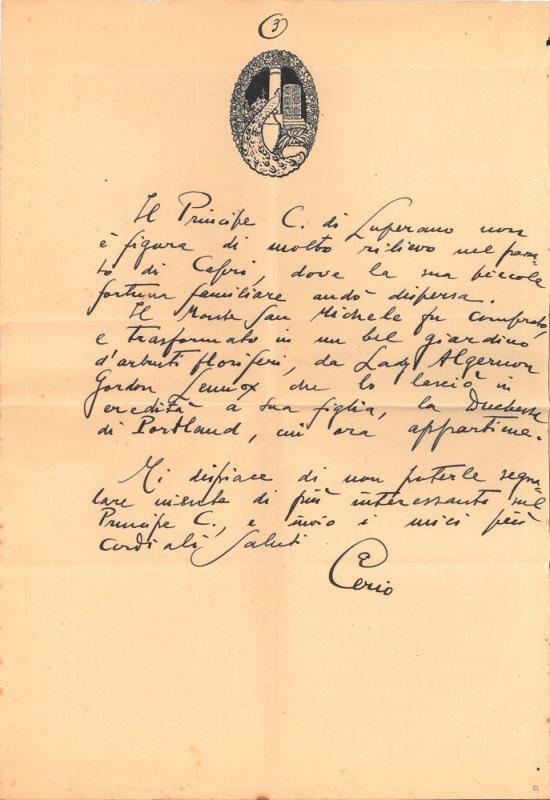 3
Il Principe C. di Luperano non
è figura di molto rilievo nel passa=
to di Capri, dove la sua piccola
fortuna familiare andò dispersa.
Il Monte San Michele fu comprato,
e trasformato in un bel giardino
d'arbusti floriferi, da Lady Algernon
Gordon Lennox che lo lasciò in
eredità a sua figlia, la Duchessa
di Portland, cui ora appartiene.
Mi dispiace di non poterle segna=
lare niente di più interessante sul
Principe C., e invio i miei più
cordiali saluti
Cerio